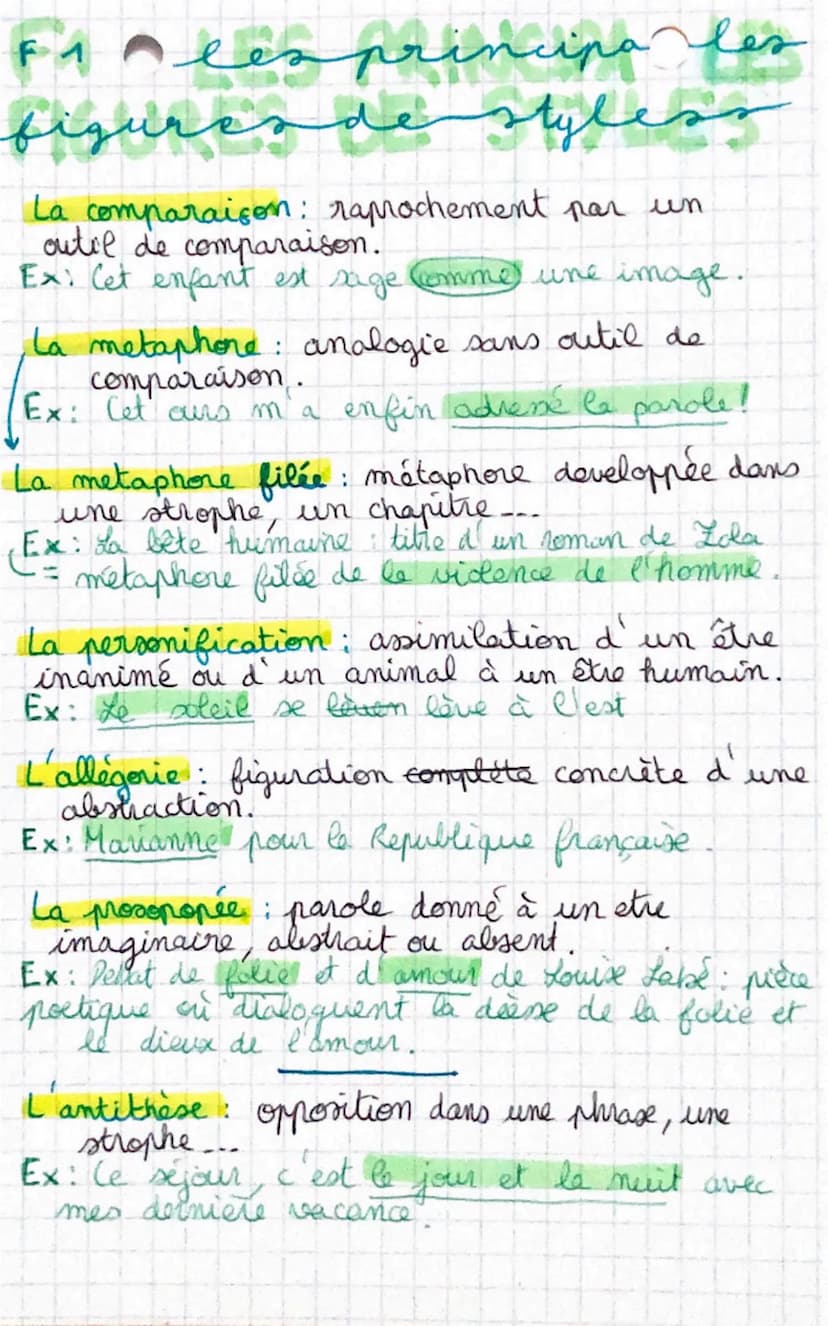 F1 les principales
figures de styles
La comparaison : raprochement par un
outil de comparaison.
Ex: Cet enfant est sage comme une image.
La metaphore : analogie sans outil de
comparaison.
Ex: Cet ours m'a enfin adressé la parole!
La metaphore filée : métaphore developpée dans
une strophe, un chapitre ...
Ex: La bête humaine : titre d'un roman de Zola
= métaphore filée de la violence de l'homme.
La personification : assimilation d'un être
inanimé ou d'un animal à un être humain.
Ex: Le soleil se lève à l'est
L'allégorie : figuration complète concrète d'une
abstraction.
Ex: Marianne pour la Republique française.
La prosopopée : parole donné à un etre
imaginaire, abstrait ou absent.
Ex: Debat de folie et d'amour de Louise Labé : pièce
poetique où dialoguent la déesse de la folie et
le dieux de l'amour.
L'antithèse : opposition dans une phrase, une
strophe ...
Ex: Ce séjour, c'est le jour et la nuit avec
mes dernière vacance.